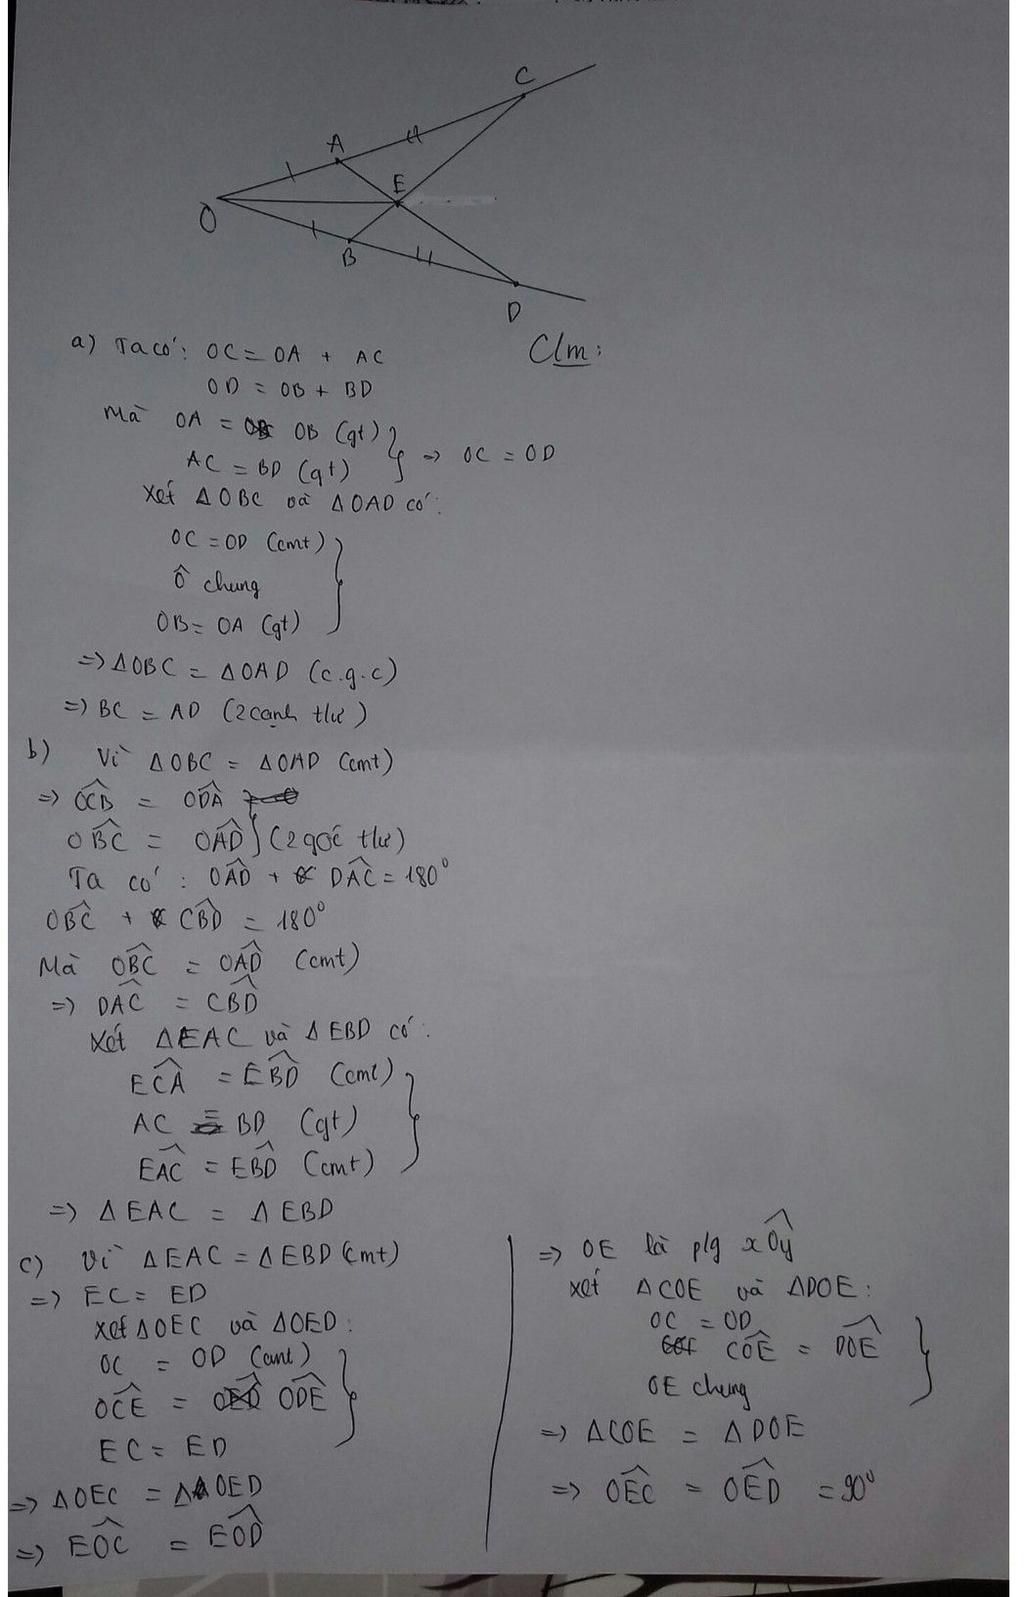 C
A
E
O
B
D
Clm:
a) Ta có: OC = OA + AC
OD = OB + BD
Mà OA = OB (gt)
AC = BD (gt) } => OC = OD
Xét ΔOBC và ΔOAD có:
OC = OD (cmt)
Ô chung
OB = OA (gt)
=> ΔOBC = ΔOAD (c.g.c)
=> BC = AD (2 cạnh tlư)
b) Vì ΔOBC = ΔOAD (cmt)
=> OĈB = OD̂A
OB̂C = OÂD } (2 góc tlư)
Ta có: OÂD + DÂC = 180°
OB̂C + CB̂D = 180°
Mà OB̂C = OÂD (cmt)
=> DÂC = CB̂D
Xét ΔEAC và ΔEBD có:
EĈA = EB̂D (cmt)
AC = BD (gt)
EÂC = EB̂D (cmt)
=> ΔEAC = ΔEBD
c) Vì ΔEAC = ΔEBD (cmt)
=> EC = ED
Xét ΔOEC và ΔOED:
OC = OD (cmt)
OĈE = OD̂E
EC = ED
=> ΔOEC = ΔOED
=> EÔC = EÔD
=> OE là p/g xÔy
Xét ΔCOE và ΔDOE:
OC = OD
CÔE = DÔE
OE chung
=> ΔCOE = ΔDOE
=> OÊC = OÊD = 90°